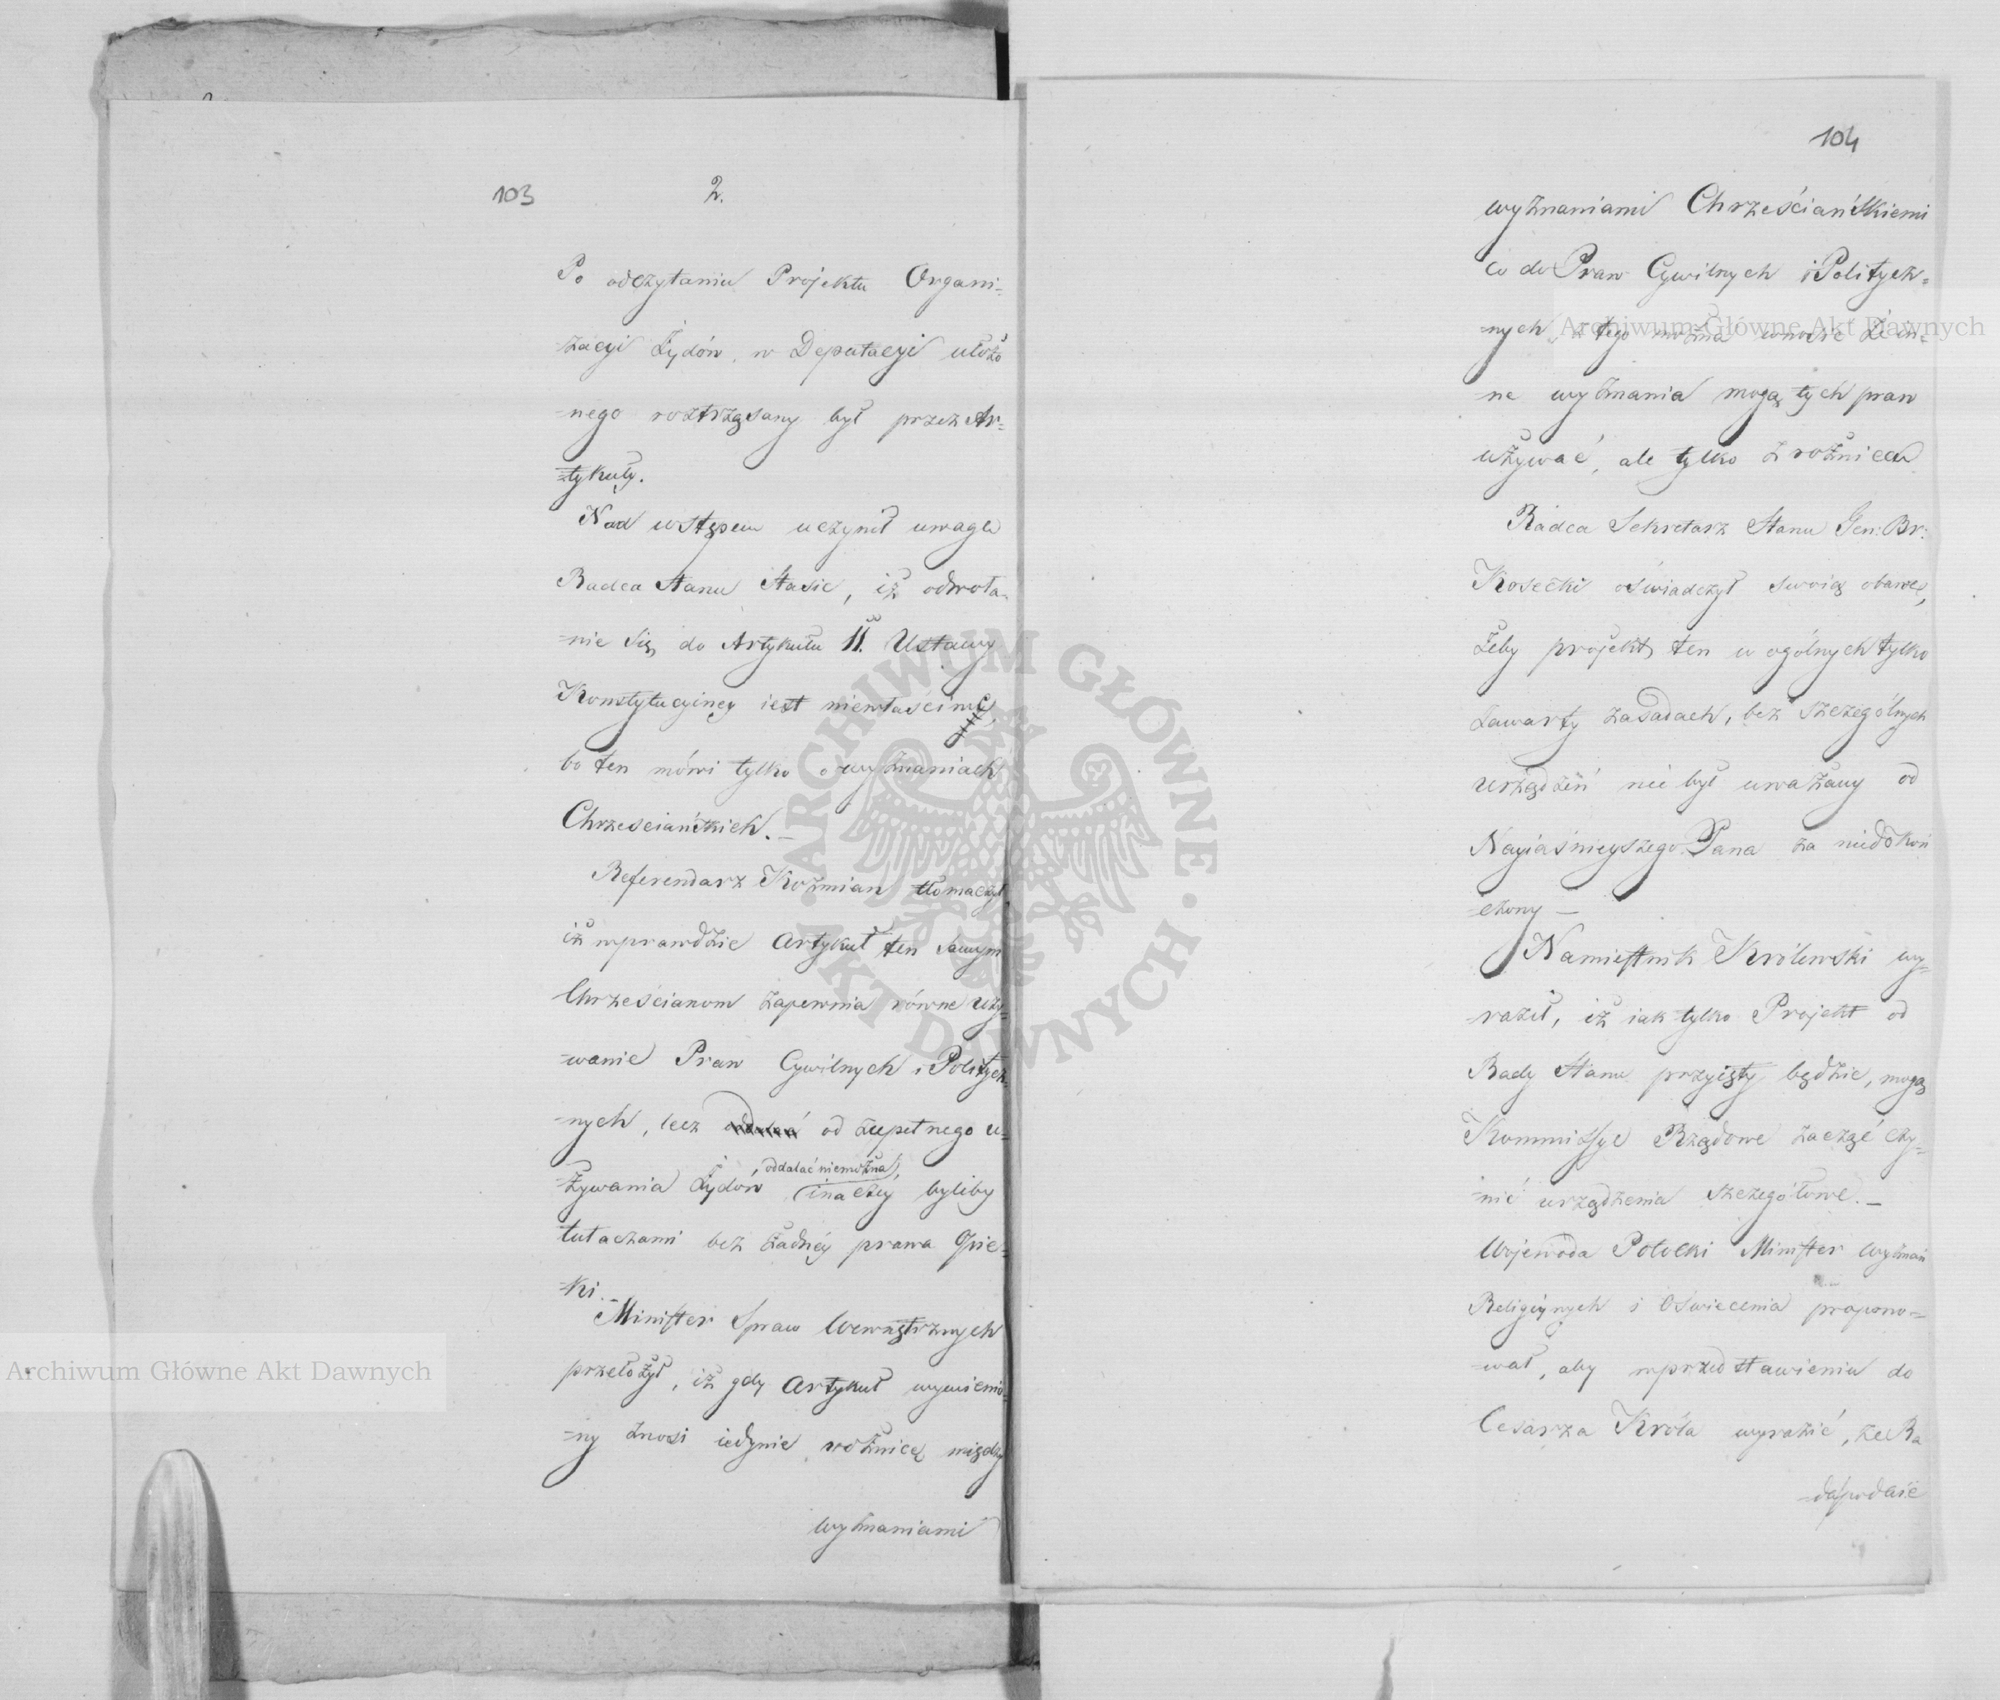 103
2.
Po odczytaniu Projektu Organi-
-zacyi Żydów, w Deputacyi ułożo
-nego roztrząsany był przez Ar-
-tykuły.
Nad wstępem uczynił uwagę
Radca Stanu Stasic, iż odwoła-
-nie się do Artykułu 11. Ustawy
Konstytucyiney iest niewłaściwe,
bo ten mówi tylko o wyznaniach
Chrześciańskich. —
Referendarz Koźmian tłomaczył
iż wprawdzie Artykuł ten samym
Chrześcianom zapewnia równe uży-
-wanie Praw Cywilnych i Politycz-
-nych, lecz od zupełnego u-
oddalać niemożna,
-żywania Żydów, inaczey byliby
tułaczami bez żadney prawa Opie-
-ki. —
Minister Spraw Wewnętrznych
przełożył, iż gdy Artykuł wymienio-
-ny znosi iedynie różnicę między
wyznaniami
104
wyznaniami Chrześciańskiemi
co do Praw Cywilnych i Politycz-
-nych, z tego można wnosić że in-
-ne wyznania mogą tych praw
używać, ale tylko z różnicą
Radca Sekretarz Stanu Gen: Br:
Kosecki oświadczył swoią obawę,
żeby projekt ten w ogólnych tylko
zawarty zasadach, bez szczególnych
urządzeń nie był uważany od
Nayiaśnieyszego Pana za niedokoń
-czony —
Namiestnik Królewski wy-
-raził, iż iak tylko Projekt od
Rady Stanu przyięty będzie, mogą
Kommissye Rządowe zacząć czy-
-nić urządzenia szczegółowe. —
Wojewoda Potocki Minister Wyznań
Religiynych i Oświecenia propono-
-wał, aby w przedstawieniu do
Cesarza Króla wyrazić, że Ra
-da podaie
Archiwum Główne Akt Dawnych
Archiwum Główne Akt Dawnych
ARCHIWUM GŁÓWNE · AKT DAWNYCH ·